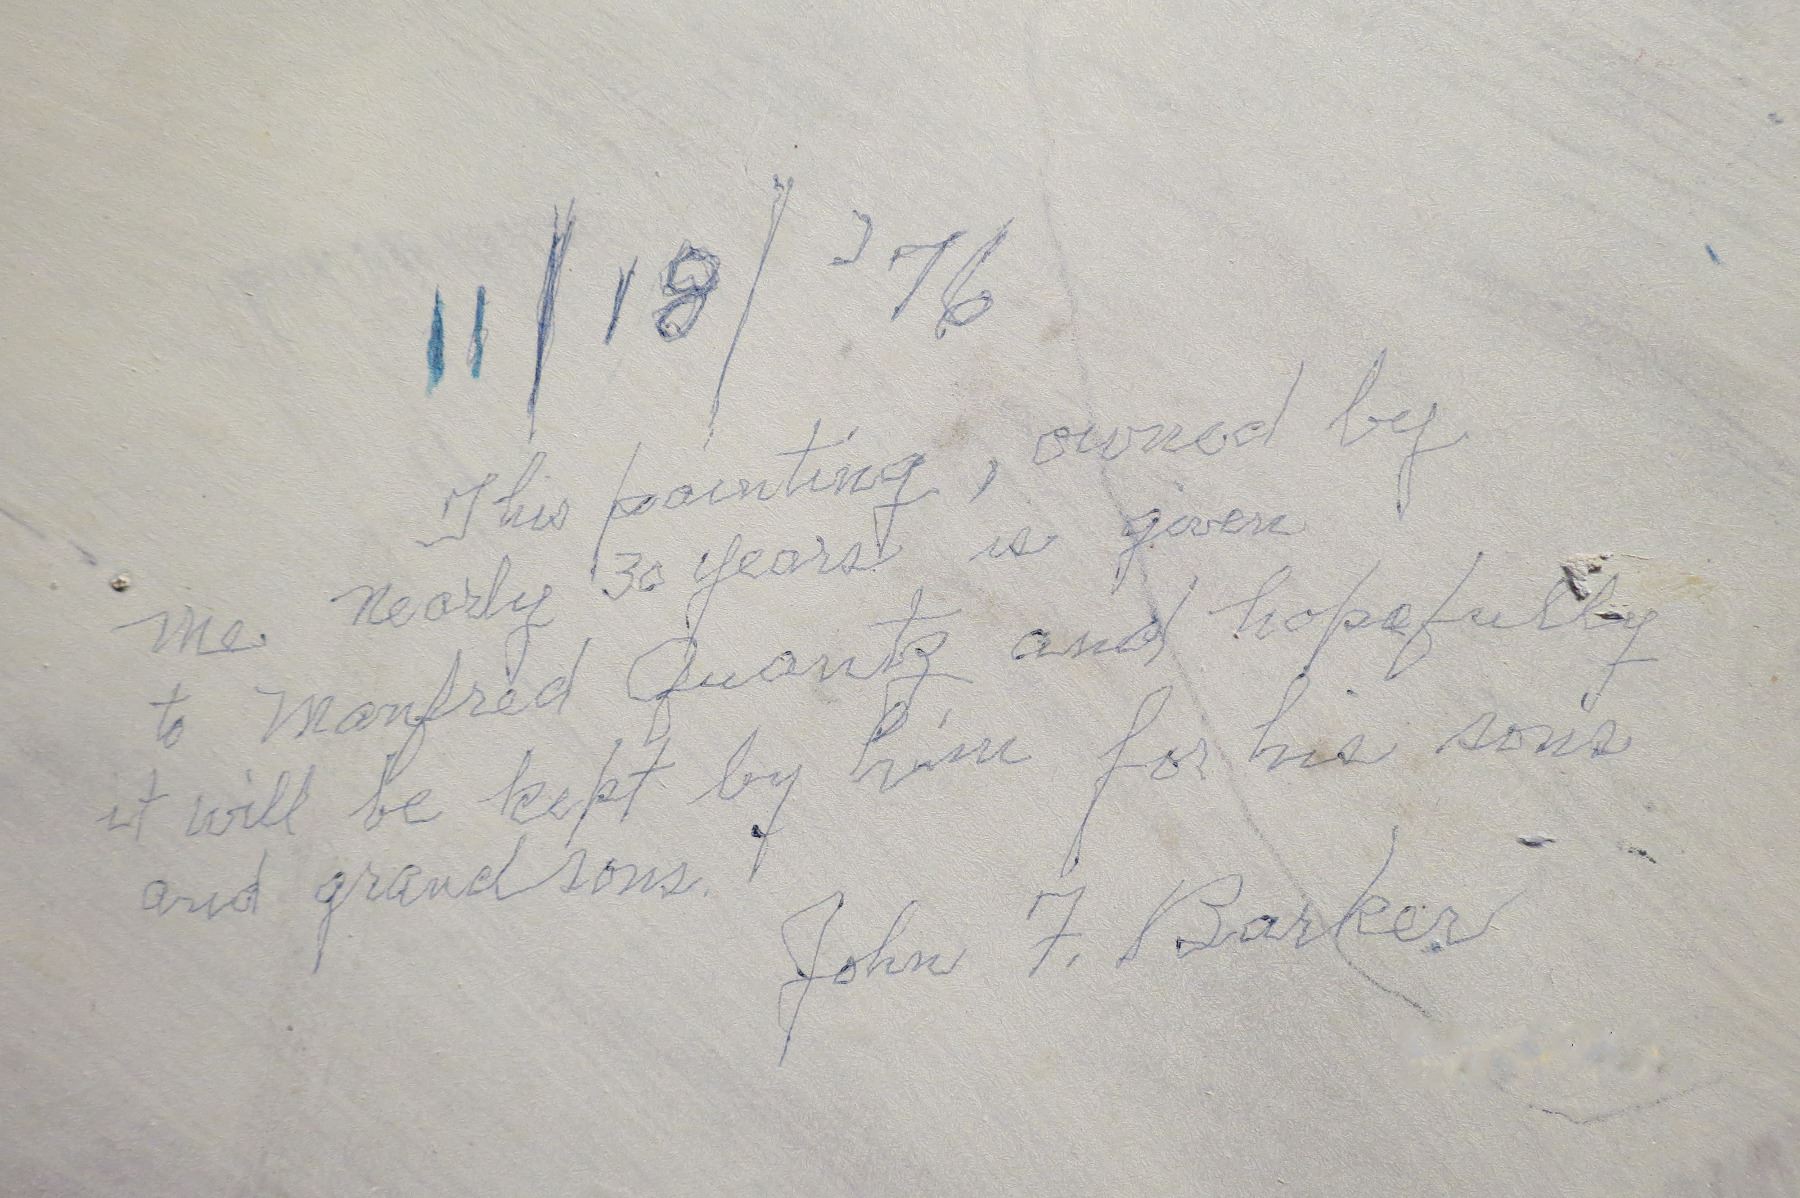 11/18/'76
This painting, owned by
me nearly 30 years is given
to Manfred Quantz and hopefully
it will be kept by him for his sons
and grandsons.
John F. Barker